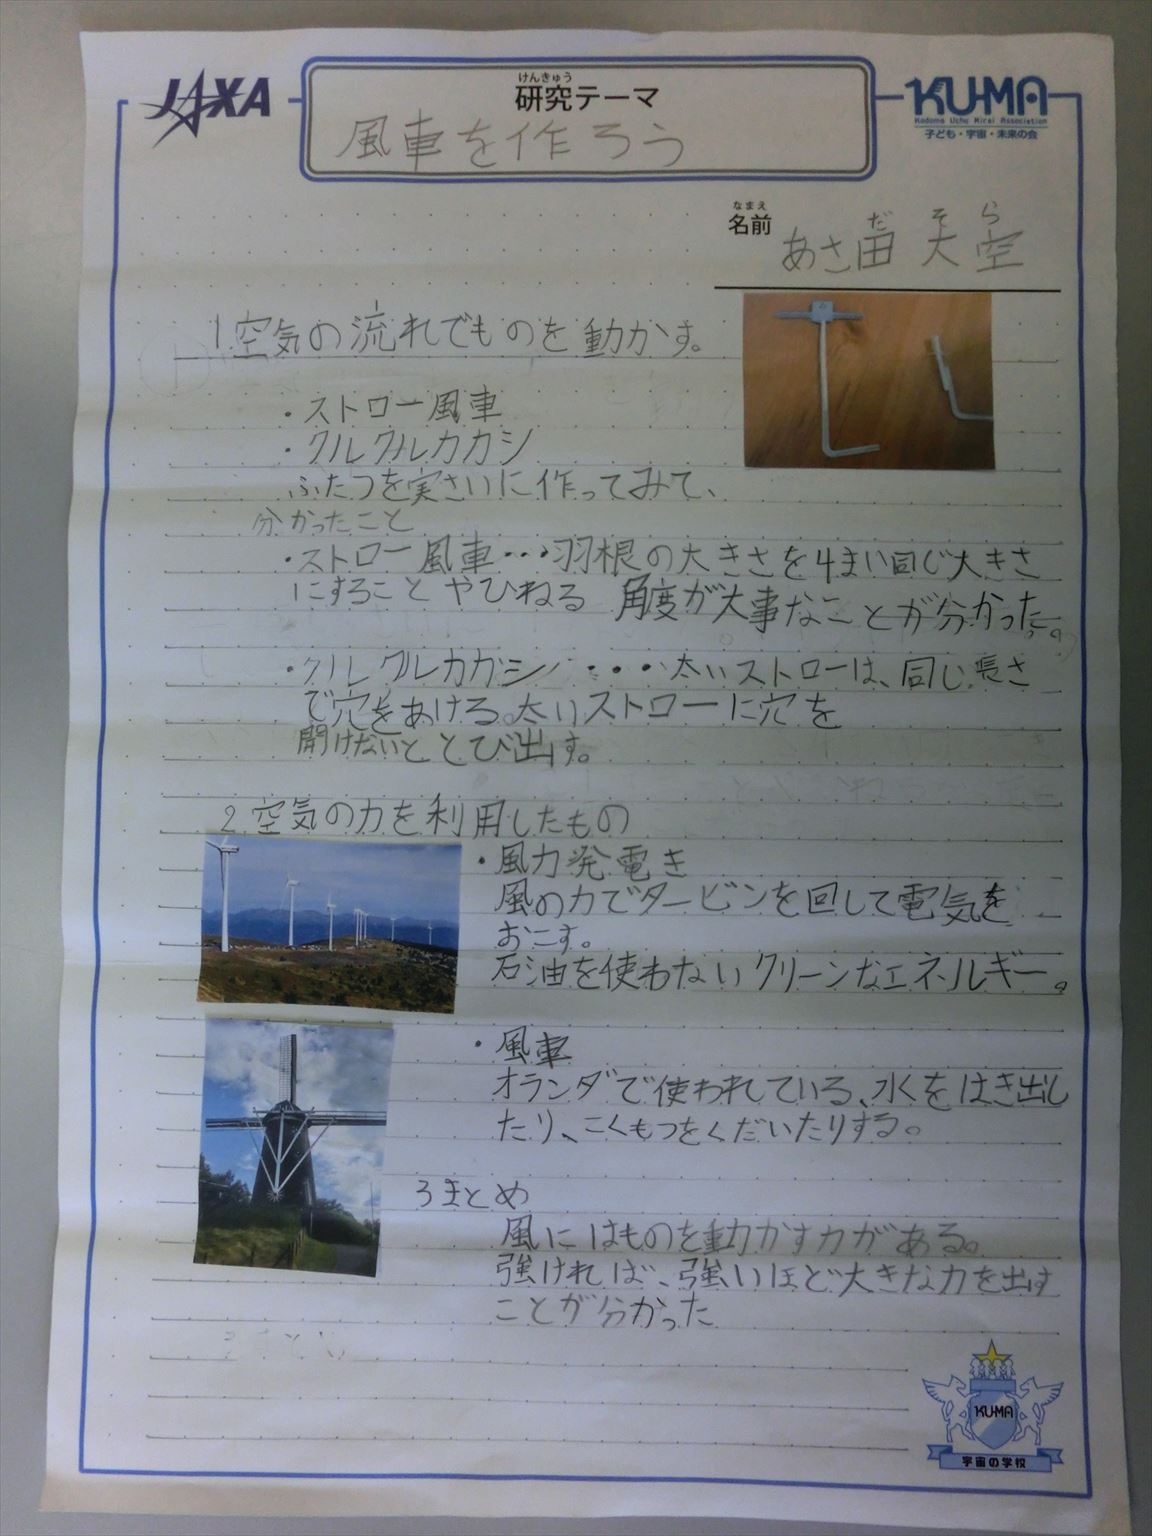 JAXA
けんきゅう
研究テーマ
風車を作ろう
KU-MA
Kodomo Uchu Mirai Association
子ども・宇宙・未来の会
なまえ
名前
だ そら
あさ田 大空
1.空気の流れでものを動かす。
・ストロー風車
・クルクルカカシ
ふたつを実さいに作ってみて、
分かったこと
・ストロー風車・・・羽根の大きさを4まい同じ大きさ
にすることやひねる 角度が大事なことが分かった。
・クルクルカカシ・・・太いストローは、同じ長さ
で穴をあける。太いストローに穴を
開けないととび出す。
2.空気の力を利用したもの
・風力発電き
風の力でタービンを回して電気を
おこす。
石油を使わないクリーンなエネルギー。
・風車
オランダで使われている、水くをはき出し
たり、こくもつをくだいたりする。
3まとめ
風にはものを動かす力がある。
強ければ、強いほど大きな力を出す
ことが分かった
KU-MA
宇宙の学校